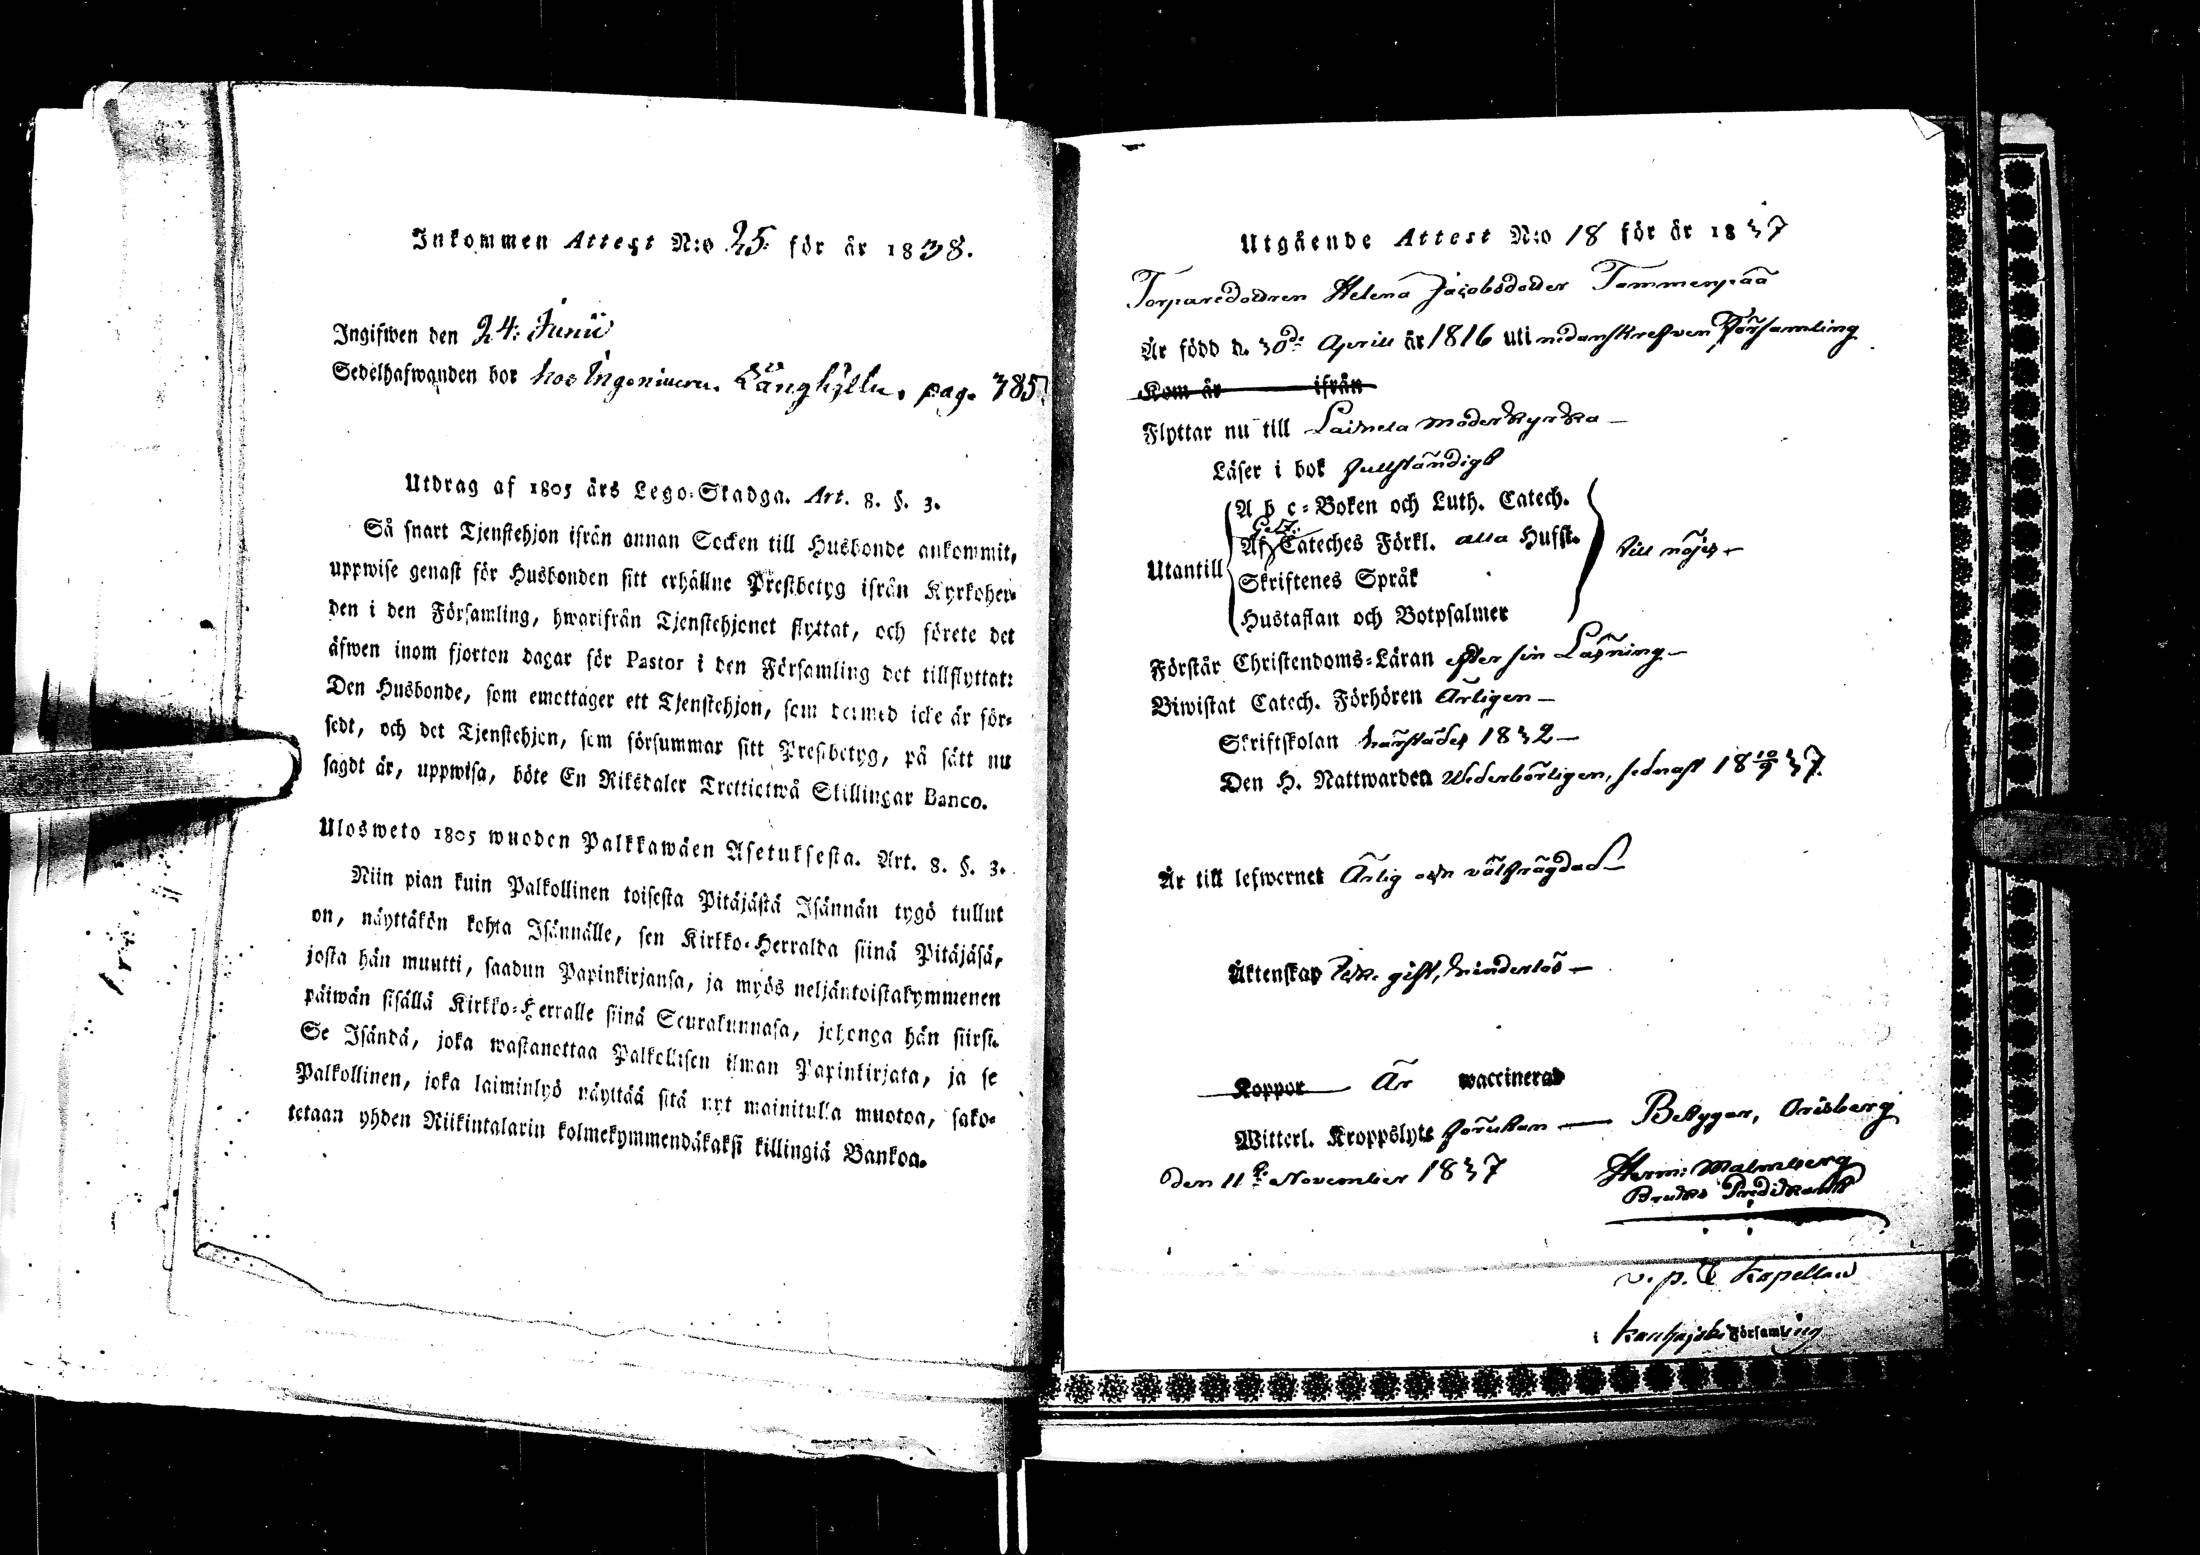 Inkommen Attest N:o 25 för år 1838.
Ingifwen den 24: Junii
Sedelhafwanden bor hos Ingenieuren Långhjelm, pag. 385.
Utdrag af 1805 års Lego-Stadga. Art. 8. §. 3.
Så snart Tjenstehjon ifrån annan Socken till Husbonde ankommit,
uppwise genast för Husbonden sitt erhållne Prestbetyg ifrån Kyrkoher-
den i den Församling, hwarifrån Tjenstehjonet flyttat, och förete det
äfwen inom fjorton dagar för Pastor i den Församling det tillflyttat:
Den Husbonde, som emottager ett Tjenstehjon, som dermed icke är för-
sedt, och det Tjenstehjon, som försummar sitt Prestbetyg, på sätt nu
sagdt är, uppwisa, böte En Riksdaler Trettiotwå Skillingar Banco.
Ulosweto 1805 wuoden Palkkawäen Asetuksesta. Art. 8. §. 3.
Niin pian kuin Palkollinen toisesta Pitäjästä Isännän tygö tullut
on, näyttäkön kohta Isännälle, sen Kirkko-Herralda siinä Pitäjäsä,
josta hän muutti, saadun Papinkirjansa, ja myös neljäntoistakymmenen
päiwän sisällä Kirkko-Herralle siinä Seurakunnasa, johonga hän siirsi.
Se Isändä, joka wastanottaa Palkollisen ilman Papinkirjata, ja se
Palkollinen, joka laiminlyö näyttää sitä nyt mainitulla muotoa, sako-
tetaan yhden Riikintalarin kolmekymmendäkaksi killingiä Bankoa.
Utgående Attest N:o 18 för år 1837
Torparedottren Helena Jacobsdotter Tammenpää
Är född d. 30de April år 1816 uti nedanskrefven Församling
Kom år ifrån
Flyttar nu till Laihela moderkyrka
Läser i bok fullständigt
A b c-Boken och Luth. Catech.
Gez.
Af Cateches Förkl. alla Hufst.
Utantill till nöjes
Skriftenes Språk
Hustaflan och Botpsalmer
Förstår Christendoms-Läran efter sin Läsning
Biwistat Catech. Förhören Årligen
Skriftskolan härstädes 1832
Den H. Nattwarden Wederbörligen, sednast 18 10/9 37.
Är till lefwernet Ärlig och välfrägdad
Äktenskap Icke gift, kinderlös
Koppor Är waccinerad
Witterl. Kroppslyte förutan Betygar, Orisberg
den 11te November 1837 Herm: Malmberg
Bruks Predikant
v. p. & Kapellan
i Församling